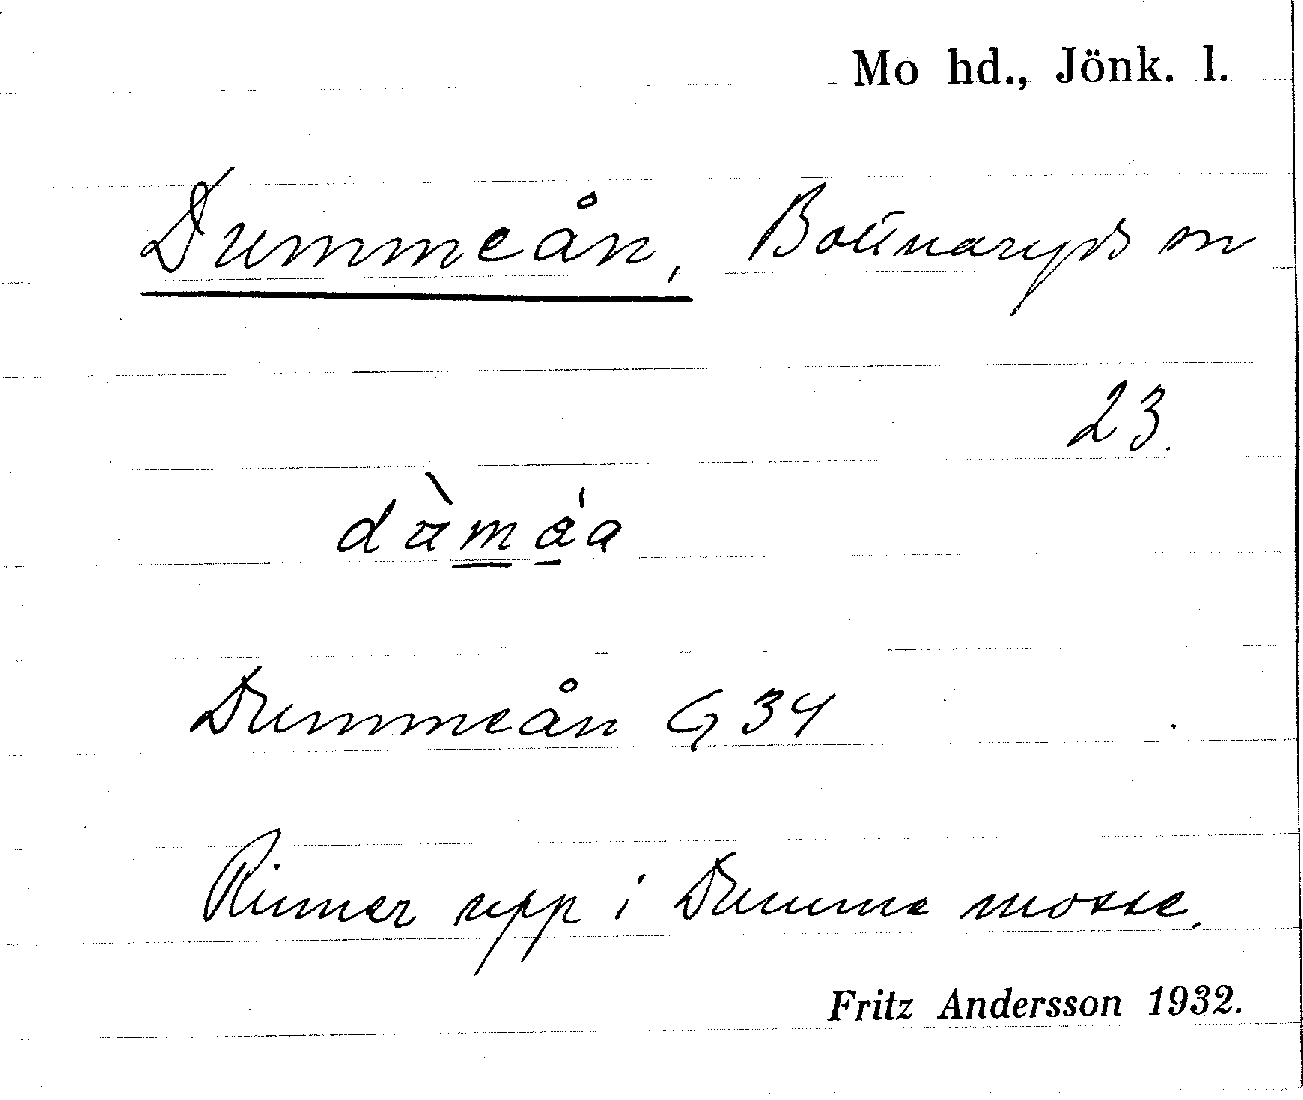 Mo hd., Jönk. l.
Dummeån, Bottnaryds sn
23.
Dummeån G 34
Rinner upp i Dumme mosse.
Fritz Andersson 1932.